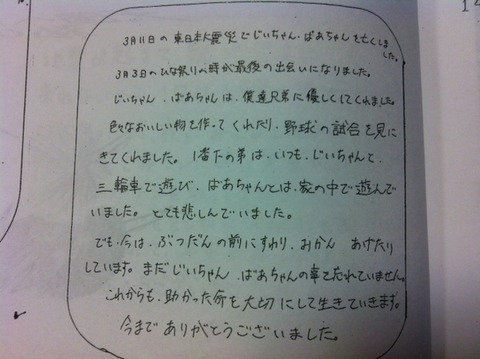 3月11日の東日本大震災でじいちゃん・ばあちゃんを亡くしました。
3月3日のひな祭りの時が最後の出会いになりました。
じいちゃん、ばあちゃんは、僕達兄弟に優しくしてくれました。
色々なおいしい物を作ってくれたり、野球の試合を見に
きてくれました。1番下の弟は、いつも、じいちゃんと、
三輪車で遊び、ばあちゃんとは、家の中で遊んで
いました。とても悲しんでいました。
でも、今は、ぶつだんの前にすわり、みかん あげたり
しています。まだじいちゃん、ばあちゃんの事を忘れていません。
これからも、助かった命を大切にして生きていきます。
今までありがとうございました。